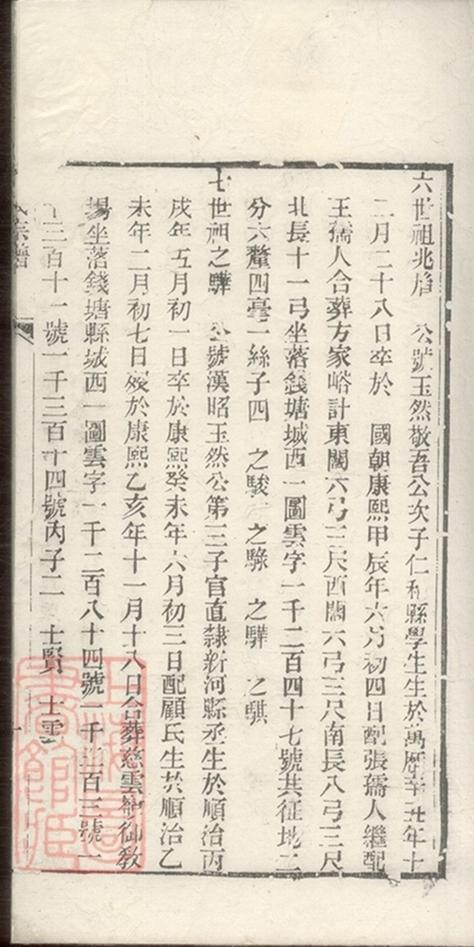 六世祖兆 公號玉然敬吾公次子仁和縣學生生於萬歷辛丑年十
二月二十八日卒於 國朝康熙甲辰年六月初四日配張孺人繼配
王孺人合葬方家峪計東闊六弓三尺西闊六弓三尺南長八弓三尺
北長十一弓坐落錢塘城西一圖雲字一千二百四十七號共征地二
分六釐四毫一絲子四 之駿 之騄 之驊 之騏
七世祖之驊 公號漢昭玉然公第三子官直隸新河縣丞生於順治丙
戌年五月初一日卒於康熙癸未年六月初三日配顧氏生於順治乙
未年二月初七日歿於康熙乙亥年十一月十八日合葬慈雲嶺御教
場坐落錢塘縣城西一圖雲字一千二百八十四號一千三百三號一
千三百十一號一千三百十四號內子二 士賢 士雲
宗譜
上海圖書館藏